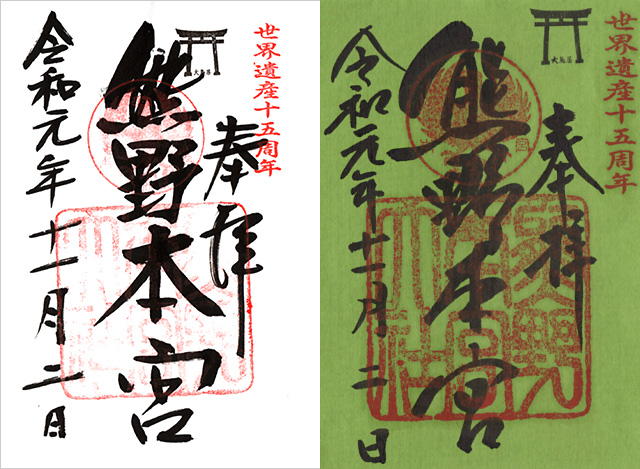 世界遺産十五周年
大鳥居
奉拝
熊野本宮
令和元年十一月二日
世界遺産十五周年
大鳥居
奉拝
熊野本宮
令和元年十一月二日